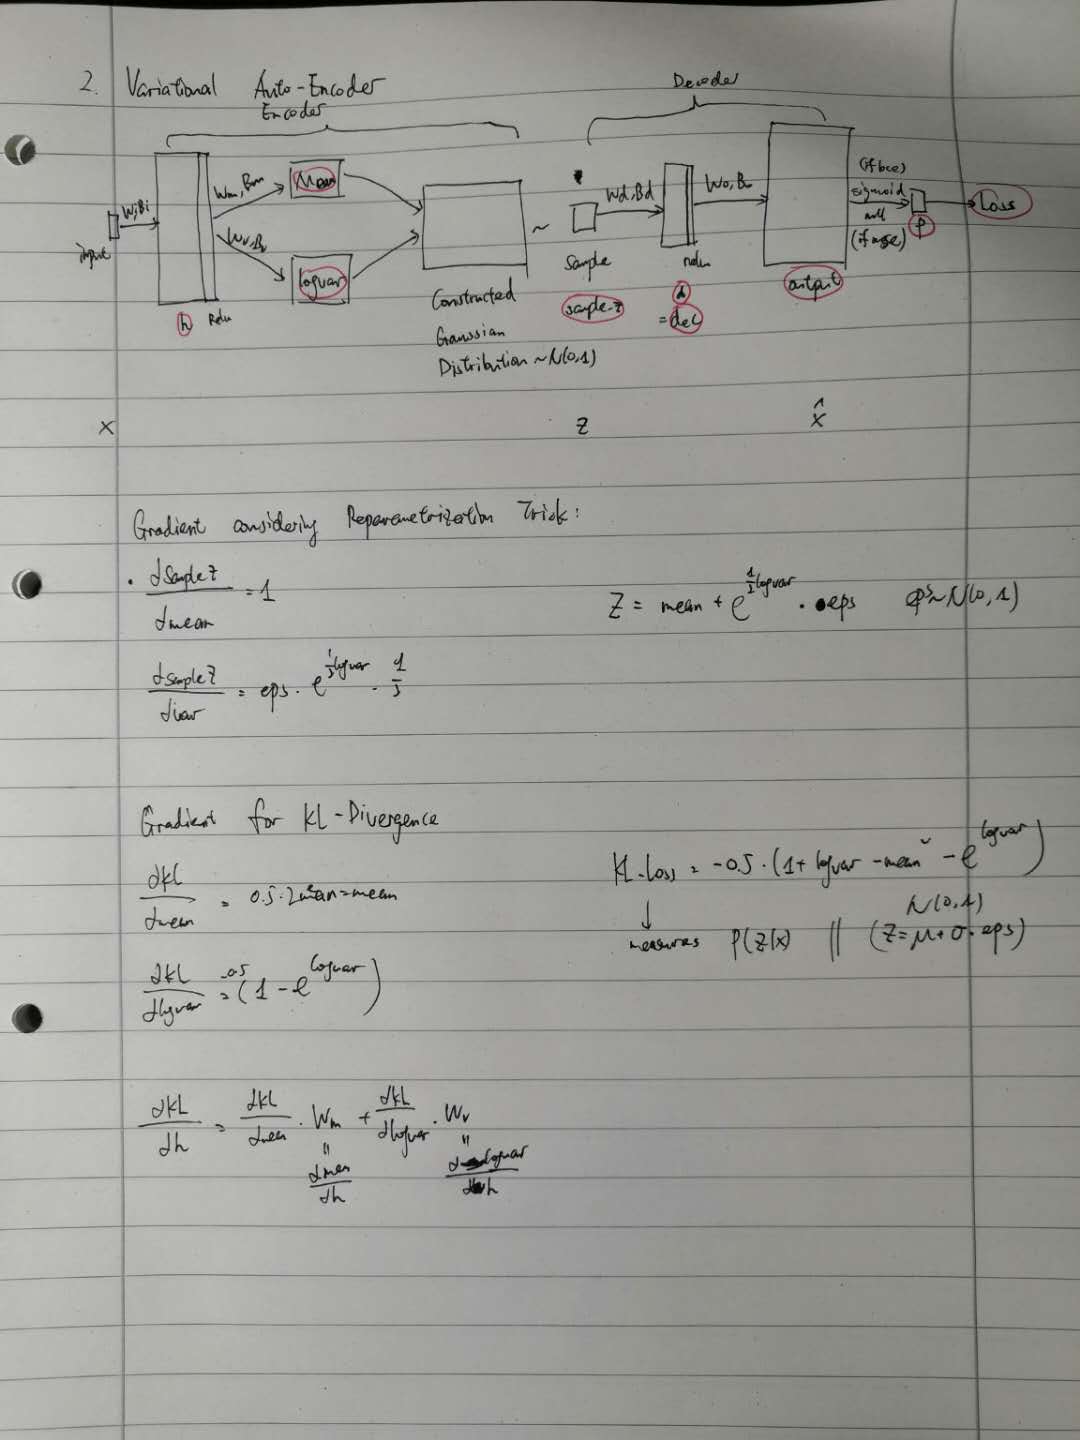 2. Variational Auto-Encoder
Encoder
Decoder
Wi,Bi
Wm, Bm
Mean
Wv,Bv
logvar
input
h
Relu
Constructed
Gaussian
Distribution ~ N(0,1)
~
Sample
sample-z
Wd,Bd
relu
d
= dec
Wo,Bo
output
(if bce)
sigmoid
null
(if mse)
p
Loss
x
z
x̂
Gradient considering Reparametrization Trick:
· dsamplez/dmean = 1
z = mean + e^(1/2 logvar) · eps eps~N(0,1)
dsamplez/dvar = eps · e^(1/2 logvar) · 1/2
Gradient for KL-Divergence
KL-loss = -0.5 · (1 + logvar - mean² - e^logvar)
dKL/dmean = 0.5 · 2mean = mean
↓
measures P(z|x) || N(0,1) (z=μ+σ·eps)
dKL/dlogvar = -0.5 (1 - e^logvar)
dKL/dh = dKL/dmean · Wm + dKL/dlogvar · Wv
" "
dmean/dh dlogvar/dh